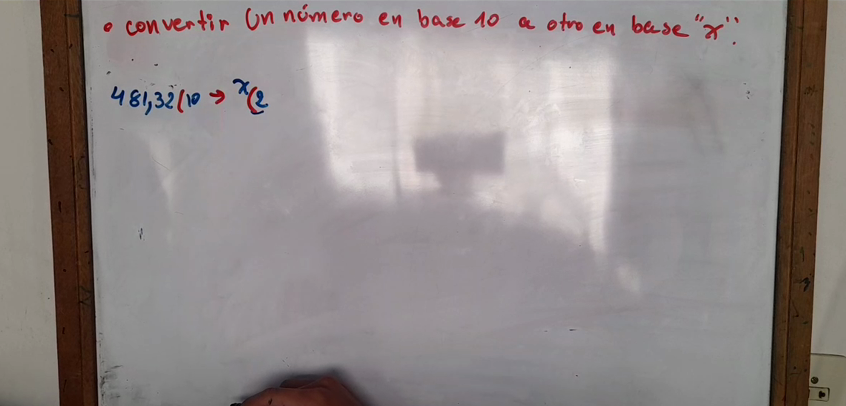 • convertir Un número en base 10 a otro en base "x".
481,32(10 → x(2